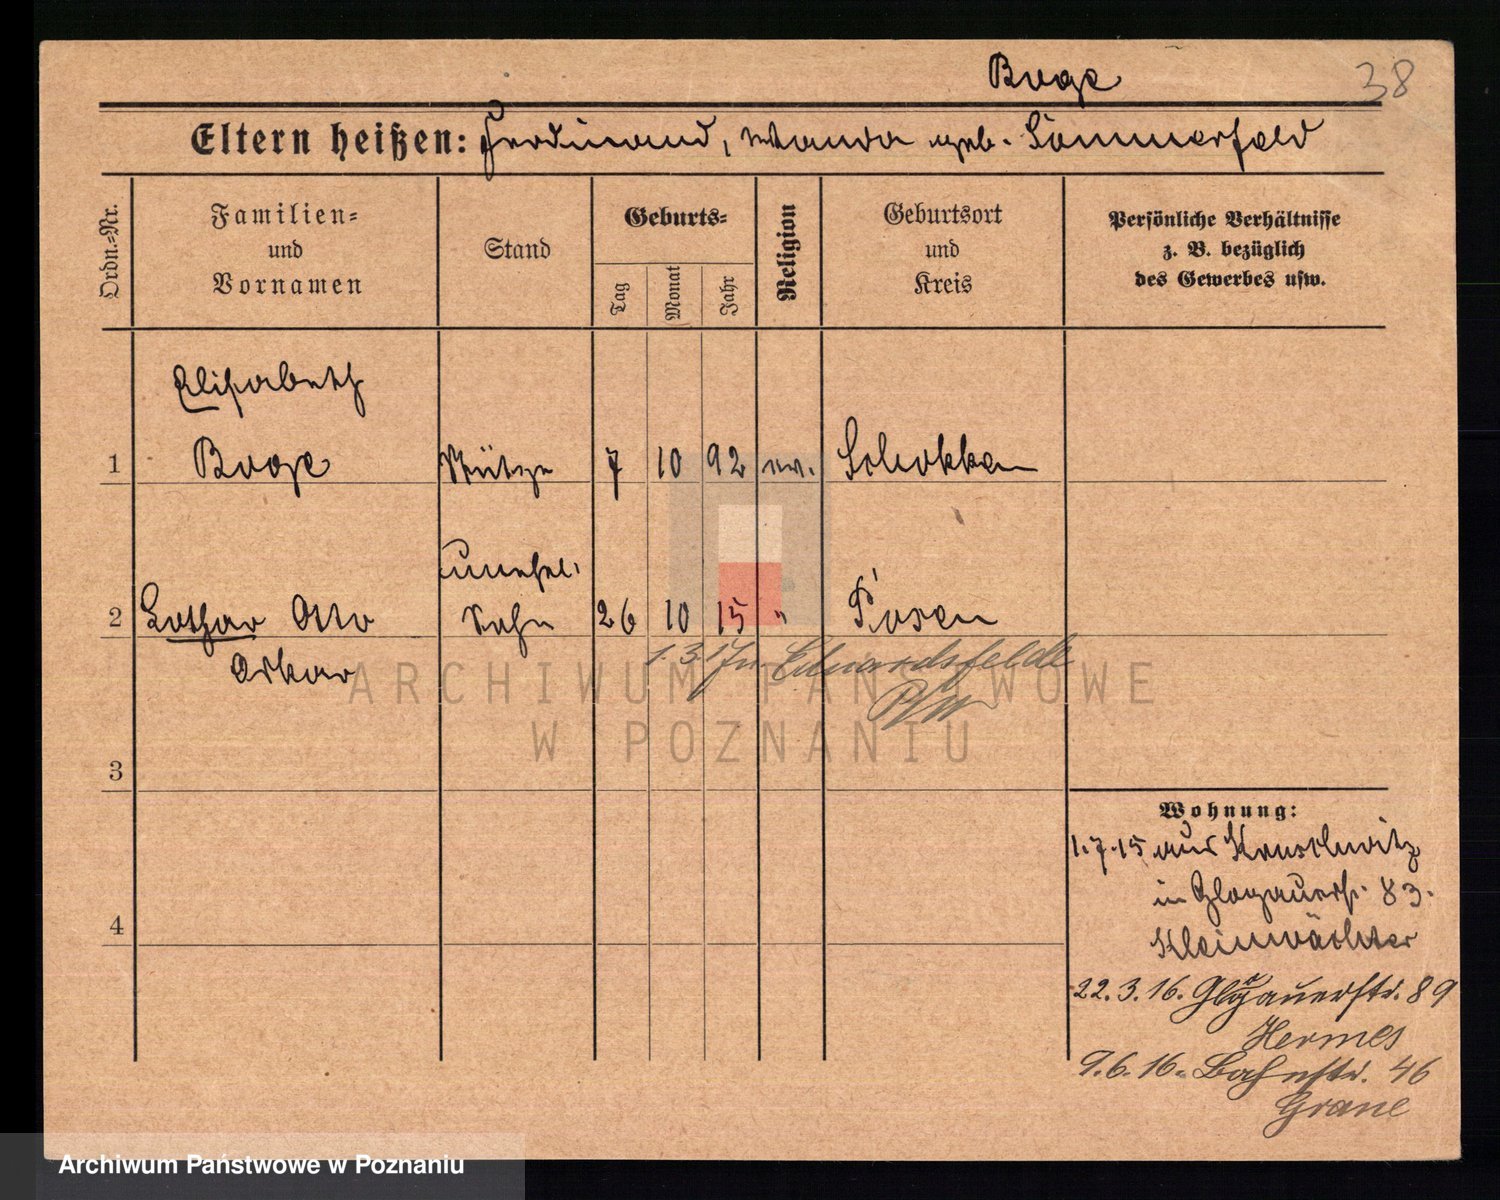 Boge
38
Eltern heißen: Ferdinand, Wanda geb. Sommerfeld
Ordn.=Nr.
Familien=
und
Vornamen
Stand
Geburts=
Tag
Monat
Jahr
Religion
Geburtsort
und
Kreis
Persönliche Verhältnisse
z. B. bezüglich
des Gewerbes usw.
Elisabeth
1 Boge Stütze 7 10 92 ev. Schokken
unehel.
2 Lothar Otto Sohn 26 10 15 " Posen
Oskar
1.3.17 n Eduardsfelde
3
4
Wohnung:
1.7.15 aus
in Glogauerstr. 83.
Kleinwächter
22.3.16. Glogauerstr. 89
Hermes
9.6.16. Bahnstr. 46
Grane
ARCHIWUM PAŃSTWOWE
W POZNANIU
Archiwum Państwowe w Poznaniu